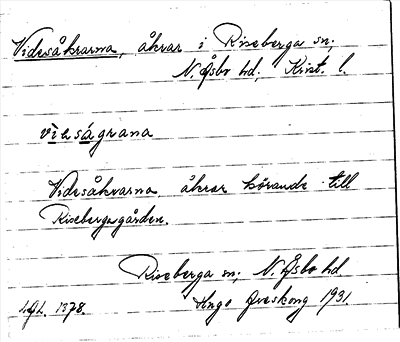 Videsåkrarna, åkrar i Riseberga sn;
N. Åsbo hd, Krist. l.
viːsågrana
Videsåkrarna åkrar hörande till
Risebergagården.
Riseberga sn; N. Åsbo hd
1378. Ingo 1931.